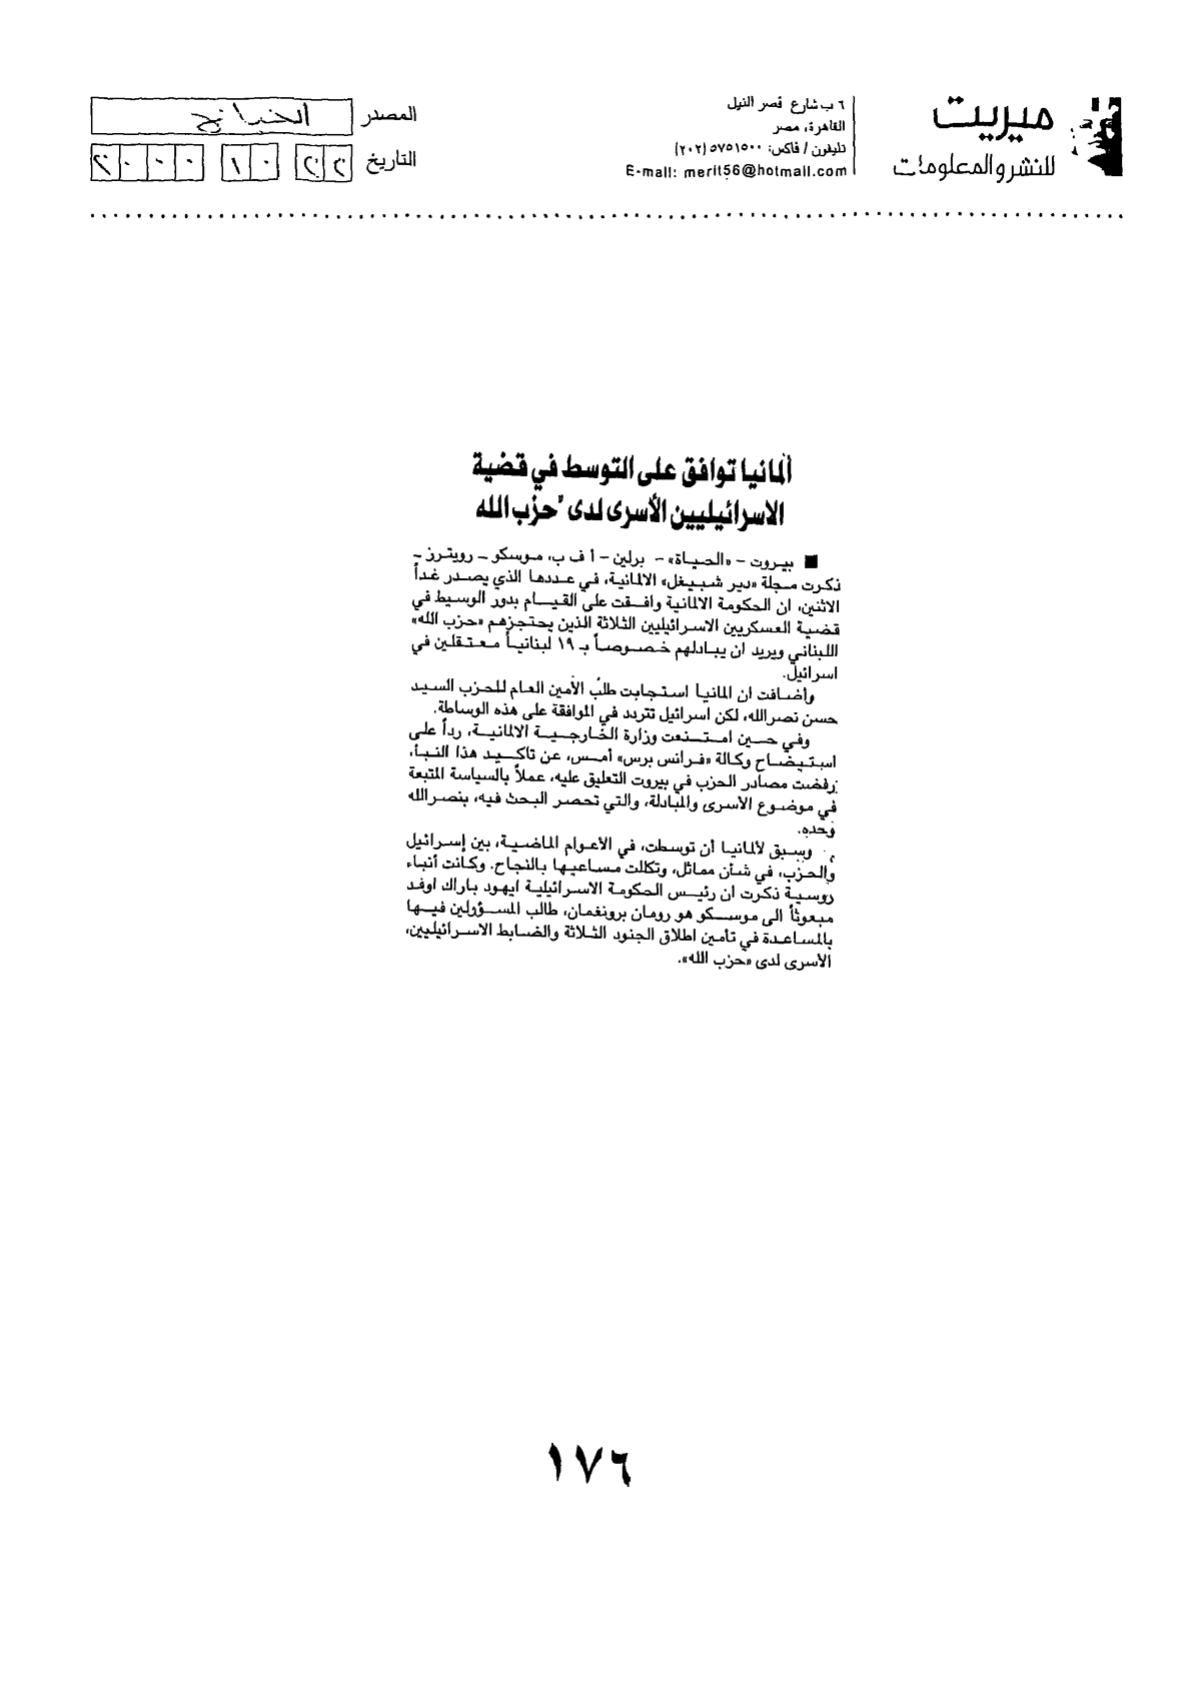 ميريت
للنشر والمعلومات
٦ ب شارع قصر النيل
القاهرة، مصر
تليفون / فاكس: ٥٧٥١٥٠٠ (٢٠٢)
E-mail: merit56@hotmail.com
المصدر
التاريخ ٢٢ ١٠ ٢٠٠٠
ألمانيا توافق على التوسط في قضية
الاسرائيليين الأسرى لدى "حزب الله
■ بيروت – «الحياة» – برلين – أ ف ب، موسكو – رويترز –
ذكرت مجلة «دير شبيغل» الالمانية، في عددها الذي يصدر غداً
الاثنين، ان الحكومة الالمانية وافقت على القيام بدور الوسيط في
قضية العسكريين الاسرائيليين الثلاثة الذين يحتجزهم «حزب الله»
اللبناني ويريد ان يبادلهم خصوصاً بـ ١٩ لبنانياً معتقلين في
اسرائيل.
وأضافت ان المانيا استجابت طلب الأمين العام للحزب السيد
حسن نصرالله، لكن اسرائيل تتردد في الموافقة على هذه الوساطة.
وفي حسين امتنعت وزارة الخارجية الالمانية، رداً على
استيضاح وكالة «فرانس برس» أمس، عن تأكيد هذا النبأ،
رفضت مصادر الحزب في بيروت التعليق عليه، عملاً بالسياسة المتبعة
في موضوع الأسرى والمبادلة، والتي تحصر البحث فيه، بنصرالله
وحده.
وسبق لألمانيا أن توسطت، في الأعوام الماضية، بين إسرائيل
والحزب، في شأن مماثل، وتكللت مساعيها بالنجاح. وكانت أنباء
روسية ذكرت ان رئيس الحكومة الاسرائيلية ايهود باراك اوفد
مبعوثاً الى موسكو هو رومان برونغمان، طالب المسؤولين فيها
بالمساعدة في تأمين اطلاق الجنود الثلاثة والضابط الاسرائيليين،
الأسرى لدى «حزب الله».
١٧٦